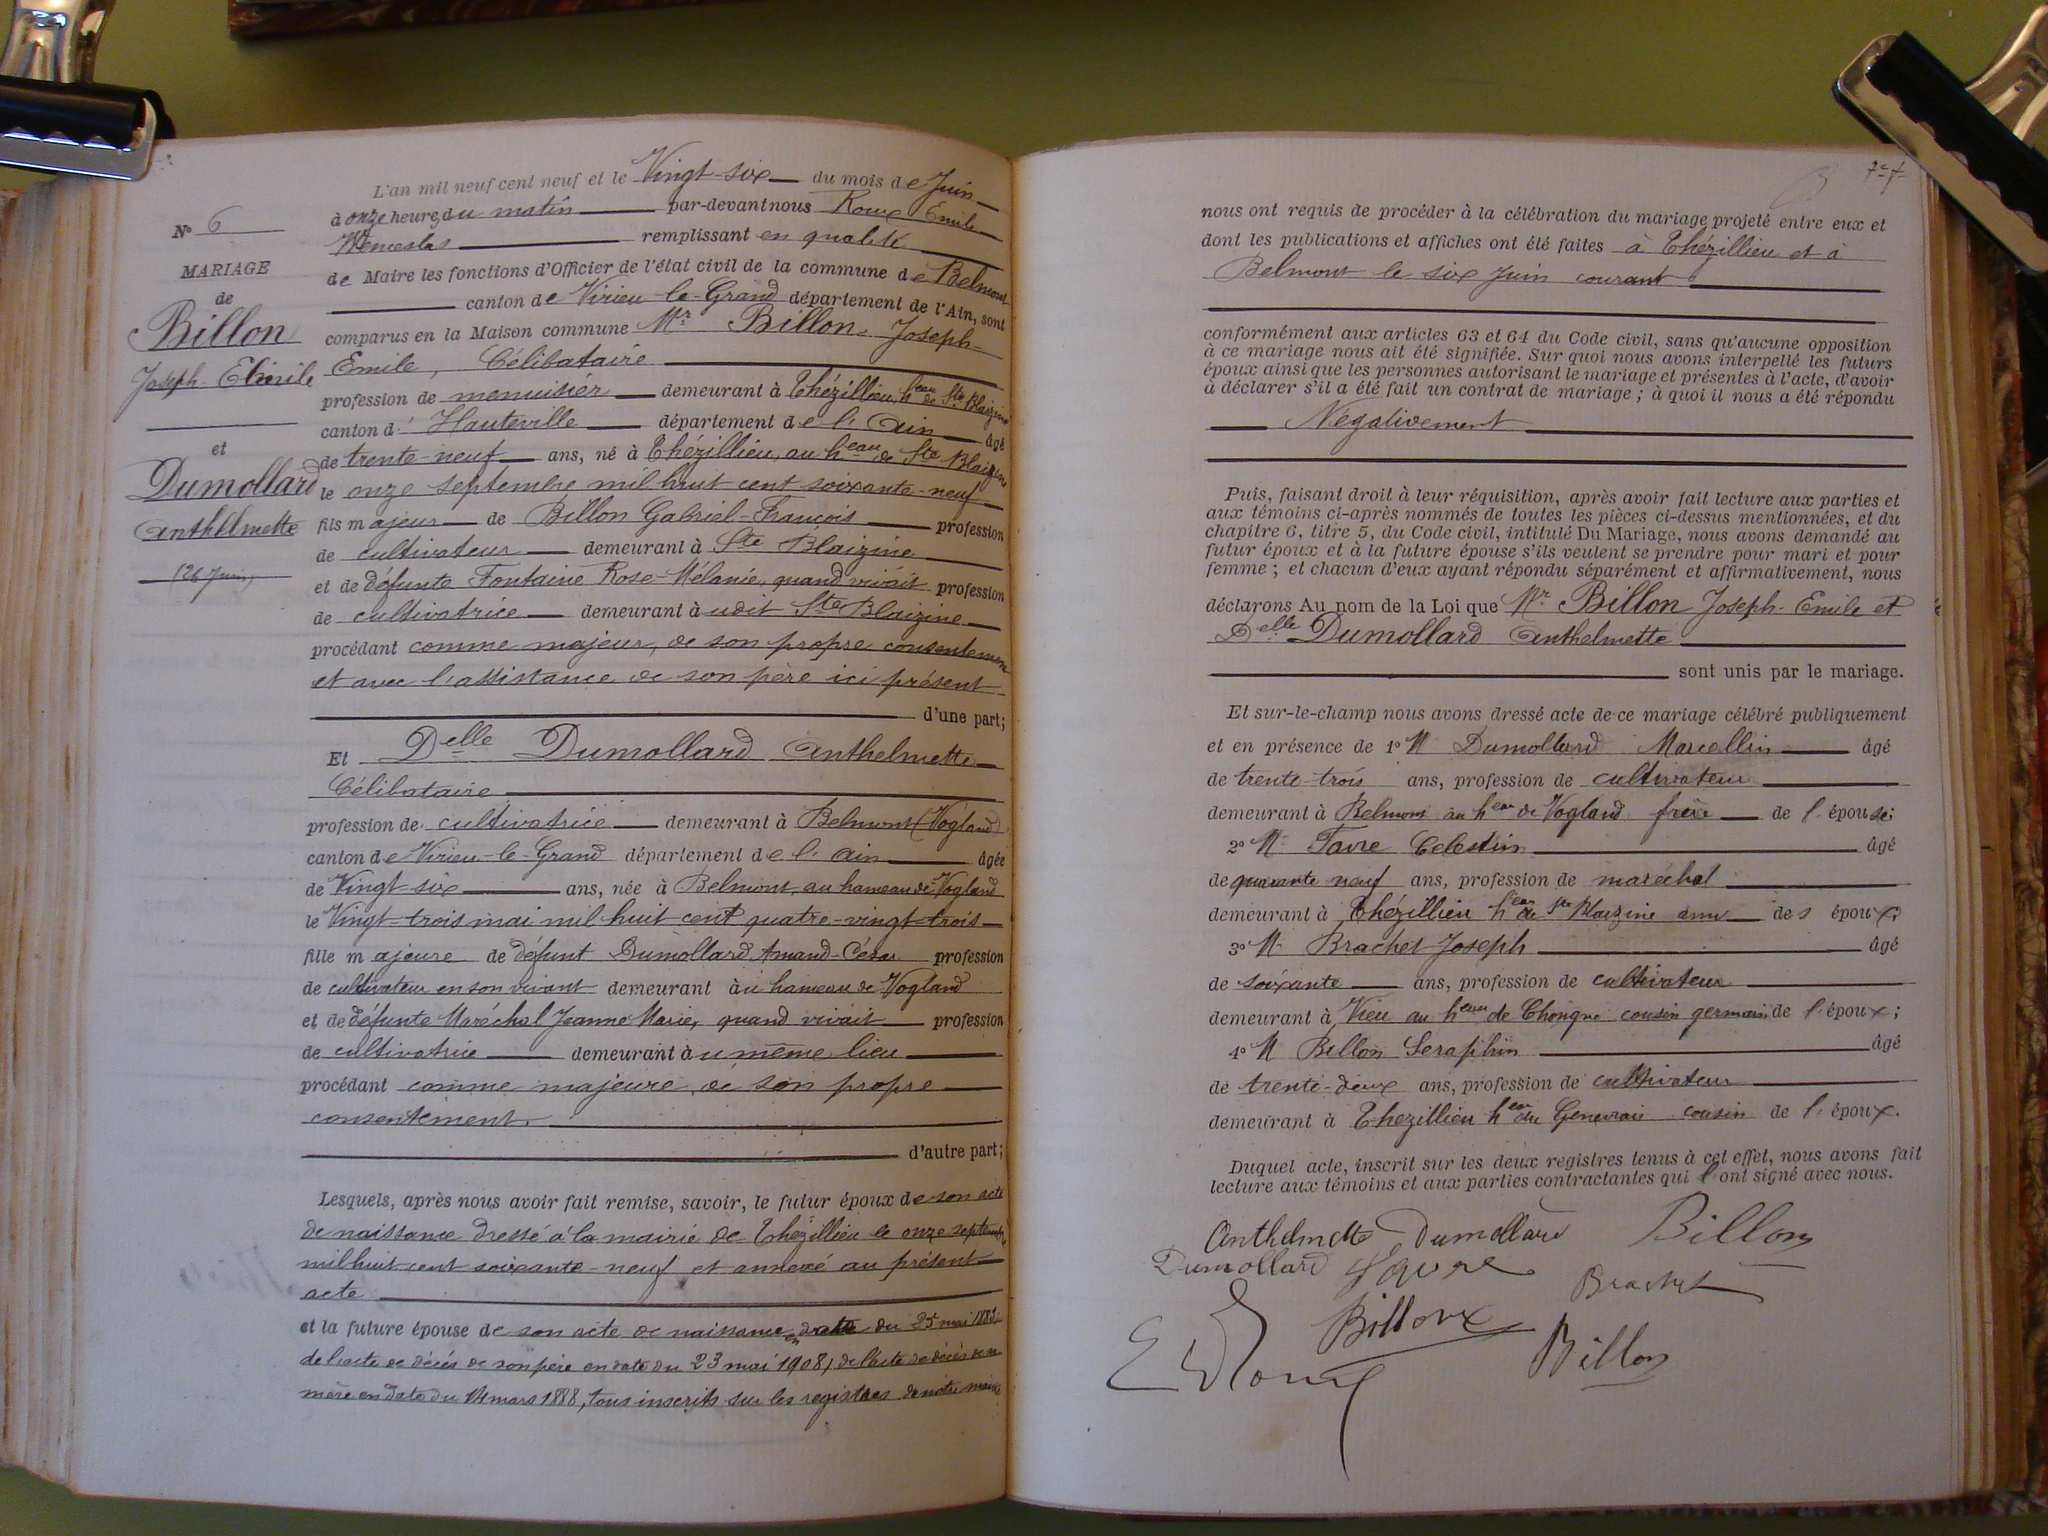 N° 6
MARIAGE
de
Billon
Joseph-Emile
et
Dumollard
Anthelmette
(26 Juin)
L'an mil neuf cent neuf et le Vingt-six du mois de Juin
à onze heures du matin par-devant nous Roux Emile
Wenceslas remplissant en qualité
de Maire les fonctions d'Officier de l'état civil de la commune de Belmont
canton de Virieu-le-Grand département de l'Ain, sont
comparus en la Maison commune Mr Billon Joseph-
Emile, Célibataire
profession de menuisier demeurant à Thézillieu, heau de Ste Blaizine
canton d' Hauteville département de l'Ain âgé
de trente-neuf ans, né à Thézillieu, au heau de Ste Blaizine
le onze septembre mil huit cent soixante-neuf
fils majeur de Billon Gabriel-François profession
de cultivateur demeurant à Ste Blaizine
et de défunte Fontaine Rose-Mélanie, quand vivait profession
de cultivatrice demeurant à udit Ste Blaizine
procédant comme majeur, de son propre consentement
et avec l'assistance de son père ici présent
d'une part;
Et Delle Dumollard Anthelmette
Célibataire
profession de cultivatrice demeurant à Belmont (Vogland)
canton de Virieu-le-Grand département de l'Ain âgée
de Vingt-six ans, née à Belmont, au hameau de Vogland
le Vingt-trois mai mil huit cent quatre-vingt-trois
fille majeure de défunt Dumollard Amand-César profession
de cultivateur en son vivant demeurant au hameau de Vogland
et de défunte Maréchal Jeanne Marie, quand vivait profession
de cultivatrice demeurant au même lieu
procédant comme majeure, de son propre
consentement.
d'autre part;
Lesquels, après nous avoir fait remise, savoir, le futur époux de son acte
de naissance dressé à la mairie de Thézillieu le onze septembre
mil huit cent soixante-neuf et annexé au présent
acte
et la future épouse de son acte de naissance en date du 25 mai
de l'acte de décès de son père en date du 23 mai 1908, de l'acte de décès de sa
mère en date du 14 mars 1888, tous inscrits sur les registres de notre mairie
nous ont requis de procéder à la célébration du mariage projeté entre eux et
dont les publications et affiches ont été faites à Thézillieu et à
Belmont le six Juin courant
conformément aux articles 63 et 64 du Code civil, sans qu'aucune opposition
à ce mariage nous ait été signifiée. Sur quoi nous avons interpellé les futurs
époux ainsi que les personnes autorisant le mariage et présentes à l'acte, d'avoir
à déclarer s'il a été fait un contrat de mariage ; à quoi il nous a été répondu
Négativement
Puis, faisant droit à leur réquisition, après avoir fait lecture aux parties et
aux témoins ci-après nommés de toutes les pièces ci-dessus mentionnées, et du
chapitre 6, titre 5, du Code civil, intitulé Du Mariage, nous avons demandé au
futur époux et à la future épouse s'ils veulent se prendre pour mari et pour
femme ; et chacun d'eux ayant répondu séparément et affirmativement, nous
déclarons Au nom de la Loi que Mr Billon Joseph-Emile et
Delle Dumollard Anthelmette
sont unis par le mariage.
Et sur-le-champ nous avons dressé acte de ce mariage célébré publiquement
et en présence de 1° M Dumollard Marcellin âgé
de trente-trois ans, profession de cultivateur
demeurant à Belmont au heau de Vogland frère de l'épouse;
2° M Favre Celestin âgé
de quarante neuf ans, profession de maréchal
demeurant à Thézillieu heau de Ste Blaizine ami des époux;
3° M Brachet Joseph âgé
de soixante ans, profession de cultivateur
demeurant à Vieu au heau de Chongne cousin germain de l'époux;
4° M Billon Seraphin âgé
de trente-deux ans, profession de cultivateur
demeurant à Thezillieu heau du Genevrais cousin de l'époux.
Duquel acte, inscrit sur les deux registres tenus à cet effet, nous avons fait
lecture aux témoins et aux parties contractantes qui l'ont signé avec nous.
Anthelmette Dumollard Billon
Dumollard Favre Brachet
E Roux Billon Billon